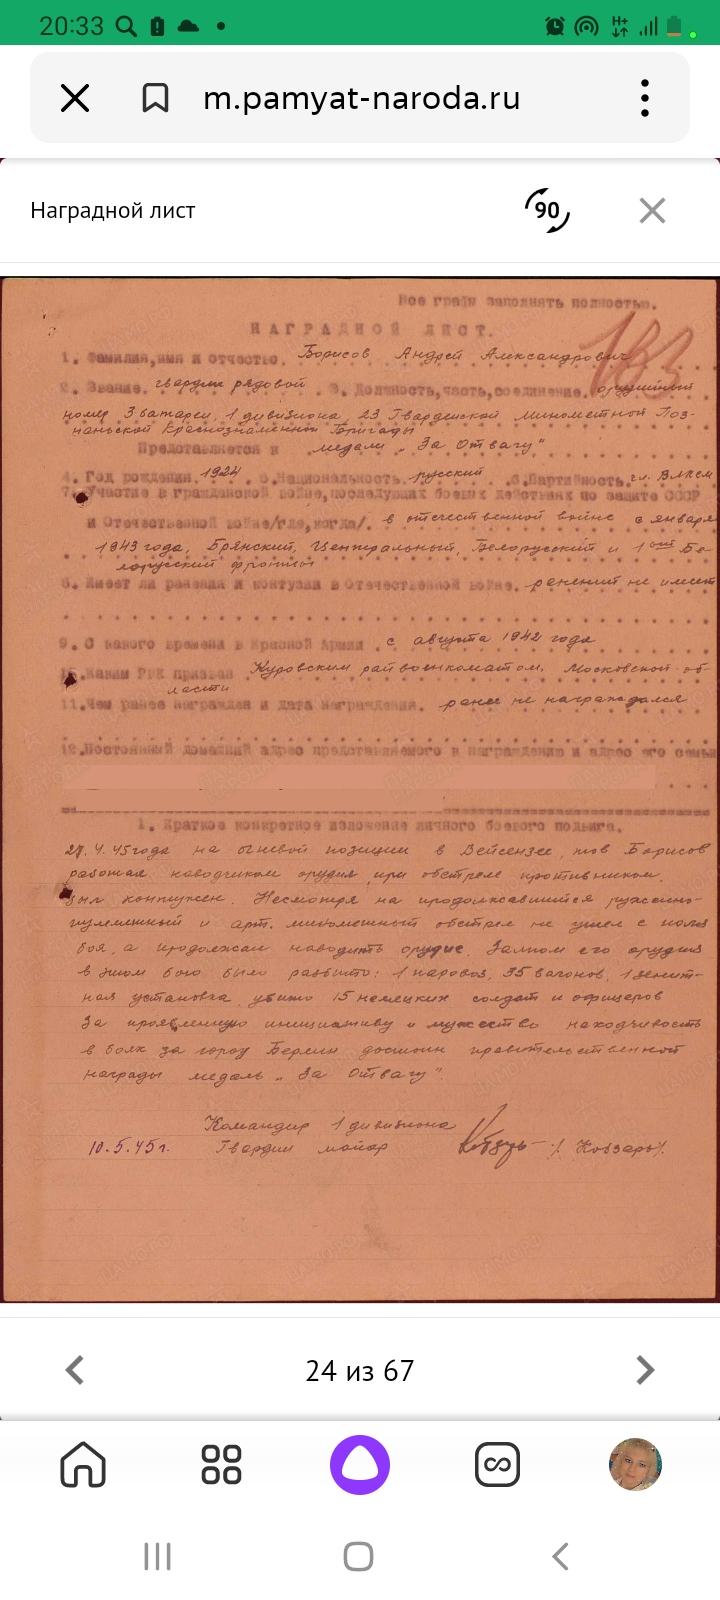 20:33
m.pamyat-naroda.ru
Наградной лист
90
Все графы заполнять полностью.
НАГРАДНОЙ ЛИСТ.
183
1. Фамилия,имя и отчество. Борисов Андрей Александрович
2. Звание. гвардии рядовой 3. Должность,часть,соединение. орудийный
номер 3 батареи, 1 дивизиона 23 Гвардейской Минометной Поз-
наньской Краснознаменной Бригады
Представляется к медали „За Отвагу"
4. Год рождения. 1924 5. Национальность. русский 6. Партийность. чл. ВЛКСМ
7. Участие в гражданской войне,последующих боевых действиях по защите СССР
и Отечественной войне/где,когда/. в отечественной войне с января
1943 года, Брянский, Центральный, Белорусский и 1ый Бе-
лорусский фронты
8. Имеет ли ранения и контузии в Отечественной войне. ранений не имеет
9. С какого времени в Красной Армии . с августа 1942 года
10. Каким РВК призван . Куровским райвоенкоматом, Московской об-
ласти
11. Чем ранее награжден и дата награждения. ранее не награждался
12. Постоянный домашний адрес представляемого к награждению и адрес его семьи
1. Краткое конкретное изложение личного боевого подвига.
27.4.45 года на огневой позиции в Вейсензее, тов Борисов
работая наводчиком орудия, при обстреле противником,
был контужен. Несмотря на продолжавшийся ружейно-
пулеметный и арт. минометный обстрел не ушел с поля
боя, а продолжал наводить орудие. Залпом его орудия
в этом бою было разбито: 1 паровоз, 35 вагонов, 1 зенит-
ная установка, убито 15 немецких солдат и офицеров
За проявленную инициативу и мужество находчивость
в боях за город Берлин достоин правительственной
награды медаль „За Отвагу"
Командир 1 дивизиона
10.5.45г. Гвардии майор /Кобзарь/.
24 из 67